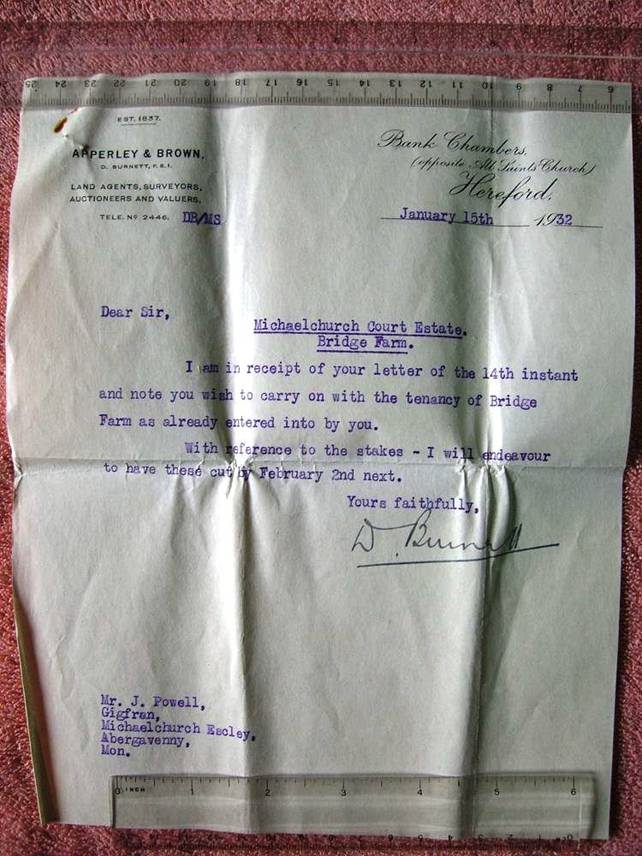 EST. 1837.
APPERLEY & BROWN,
D. BURNETT, F.S.I.
LAND AGENTS, SURVEYORS,
AUCTIONEERS AND VALUERS.
TELE. Nº 2446. DB/MS
Bank Chambers,
(opposite All Saints Church)
Hereford,
January 15th 1932
Dear Sir,
Michaelchurch Court Estate.
Bridge Farm.
I am in receipt of your letter of the 14th instant
and note you wish to carry on with the tenancy of Bridge
Farm as already entered into by you.
With reference to the stakes - I will endeavour
to have these cut by February 2nd next.
Yours faithfully,
D. Burnett
Mr. J. Powell,
Gigfran,
Michaelchurch Escley,
Abergavenny,
Mon.
25 24 23 22 21 20 19 18 17 16 15 14 13 12 11 10 9 8 7 6
0 INCH 1 2 3 4 5 6